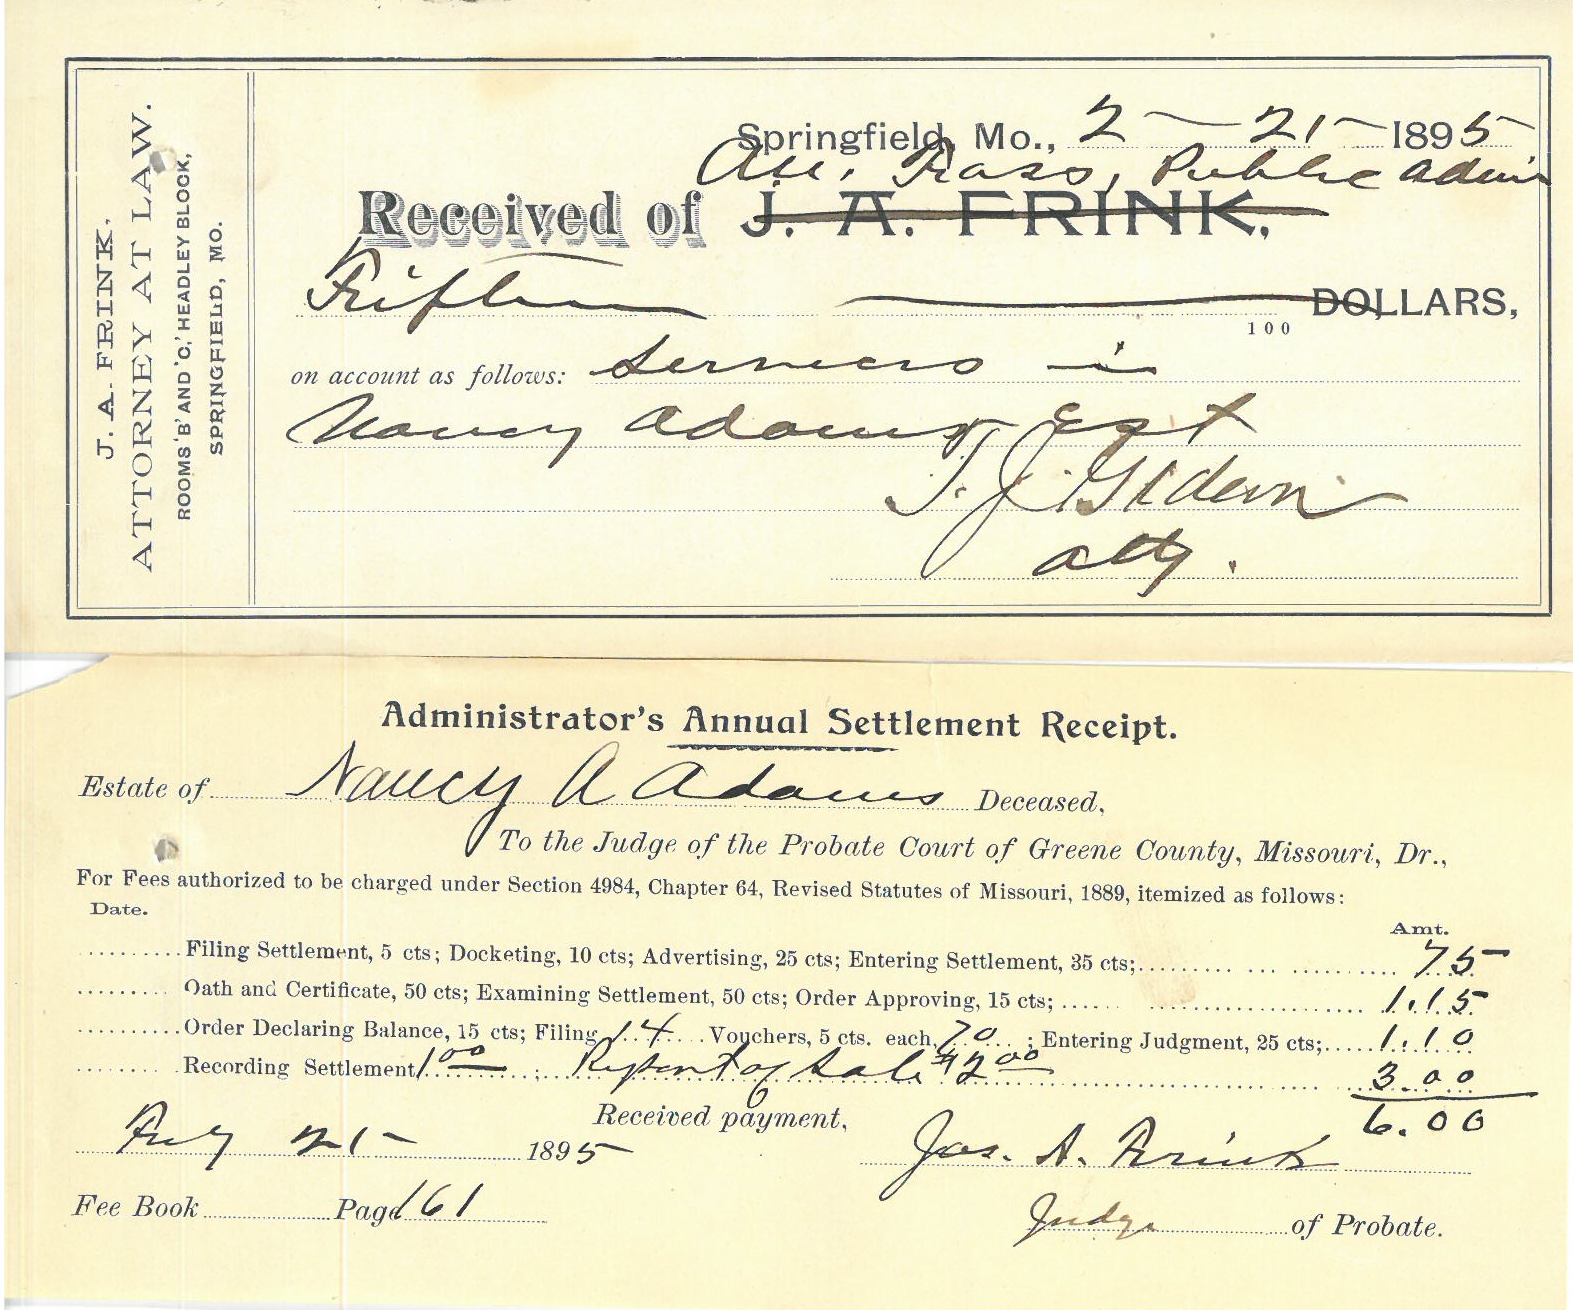 J. A. FRINK.
ATTORNEY AT LAW.
ROOMS 'B' AND 'C,' HEADLEY BLOCK,
SPRINGFIELD, MO.
Springfield, Mo., 2 - 21 - 1895
Ross, Public Admr
Received of J. A. FRINK.
Fifteen DOLLARS,
100
on account as follows: Services in
Nancy Adams Est
T. J. Gideon
atty.
Administrator's Annual Settlement Receipt.
Estate of Nancy A Adams Deceased,
To the Judge of the Probate Court of Greene County, Missouri, Dr.,
For Fees authorized to be charged under Section 4984, Chapter 64, Revised Statutes of Missouri, 1889, itemized as follows:
Date.
Amt.
Filing Settlement, 5 cts; Docketing, 10 cts; Advertising, 25 cts; Entering Settlement, 35 cts; 75
Oath and Certificate, 50 cts; Examining Settlement, 50 cts; Order Approving, 15 cts; 1.15
Order Declaring Balance, 15 cts; Filing 14 Vouchers, 5 cts. each, 70 ; Entering Judgment, 25 cts; 1.10
Recording Settlement 1.00 ; Report of Sale $2.00 3.00
6.00
Received payment,
Feby 21 - 1895 Jas. A. Frink
Fee Book Page 161
Judge of Probate.